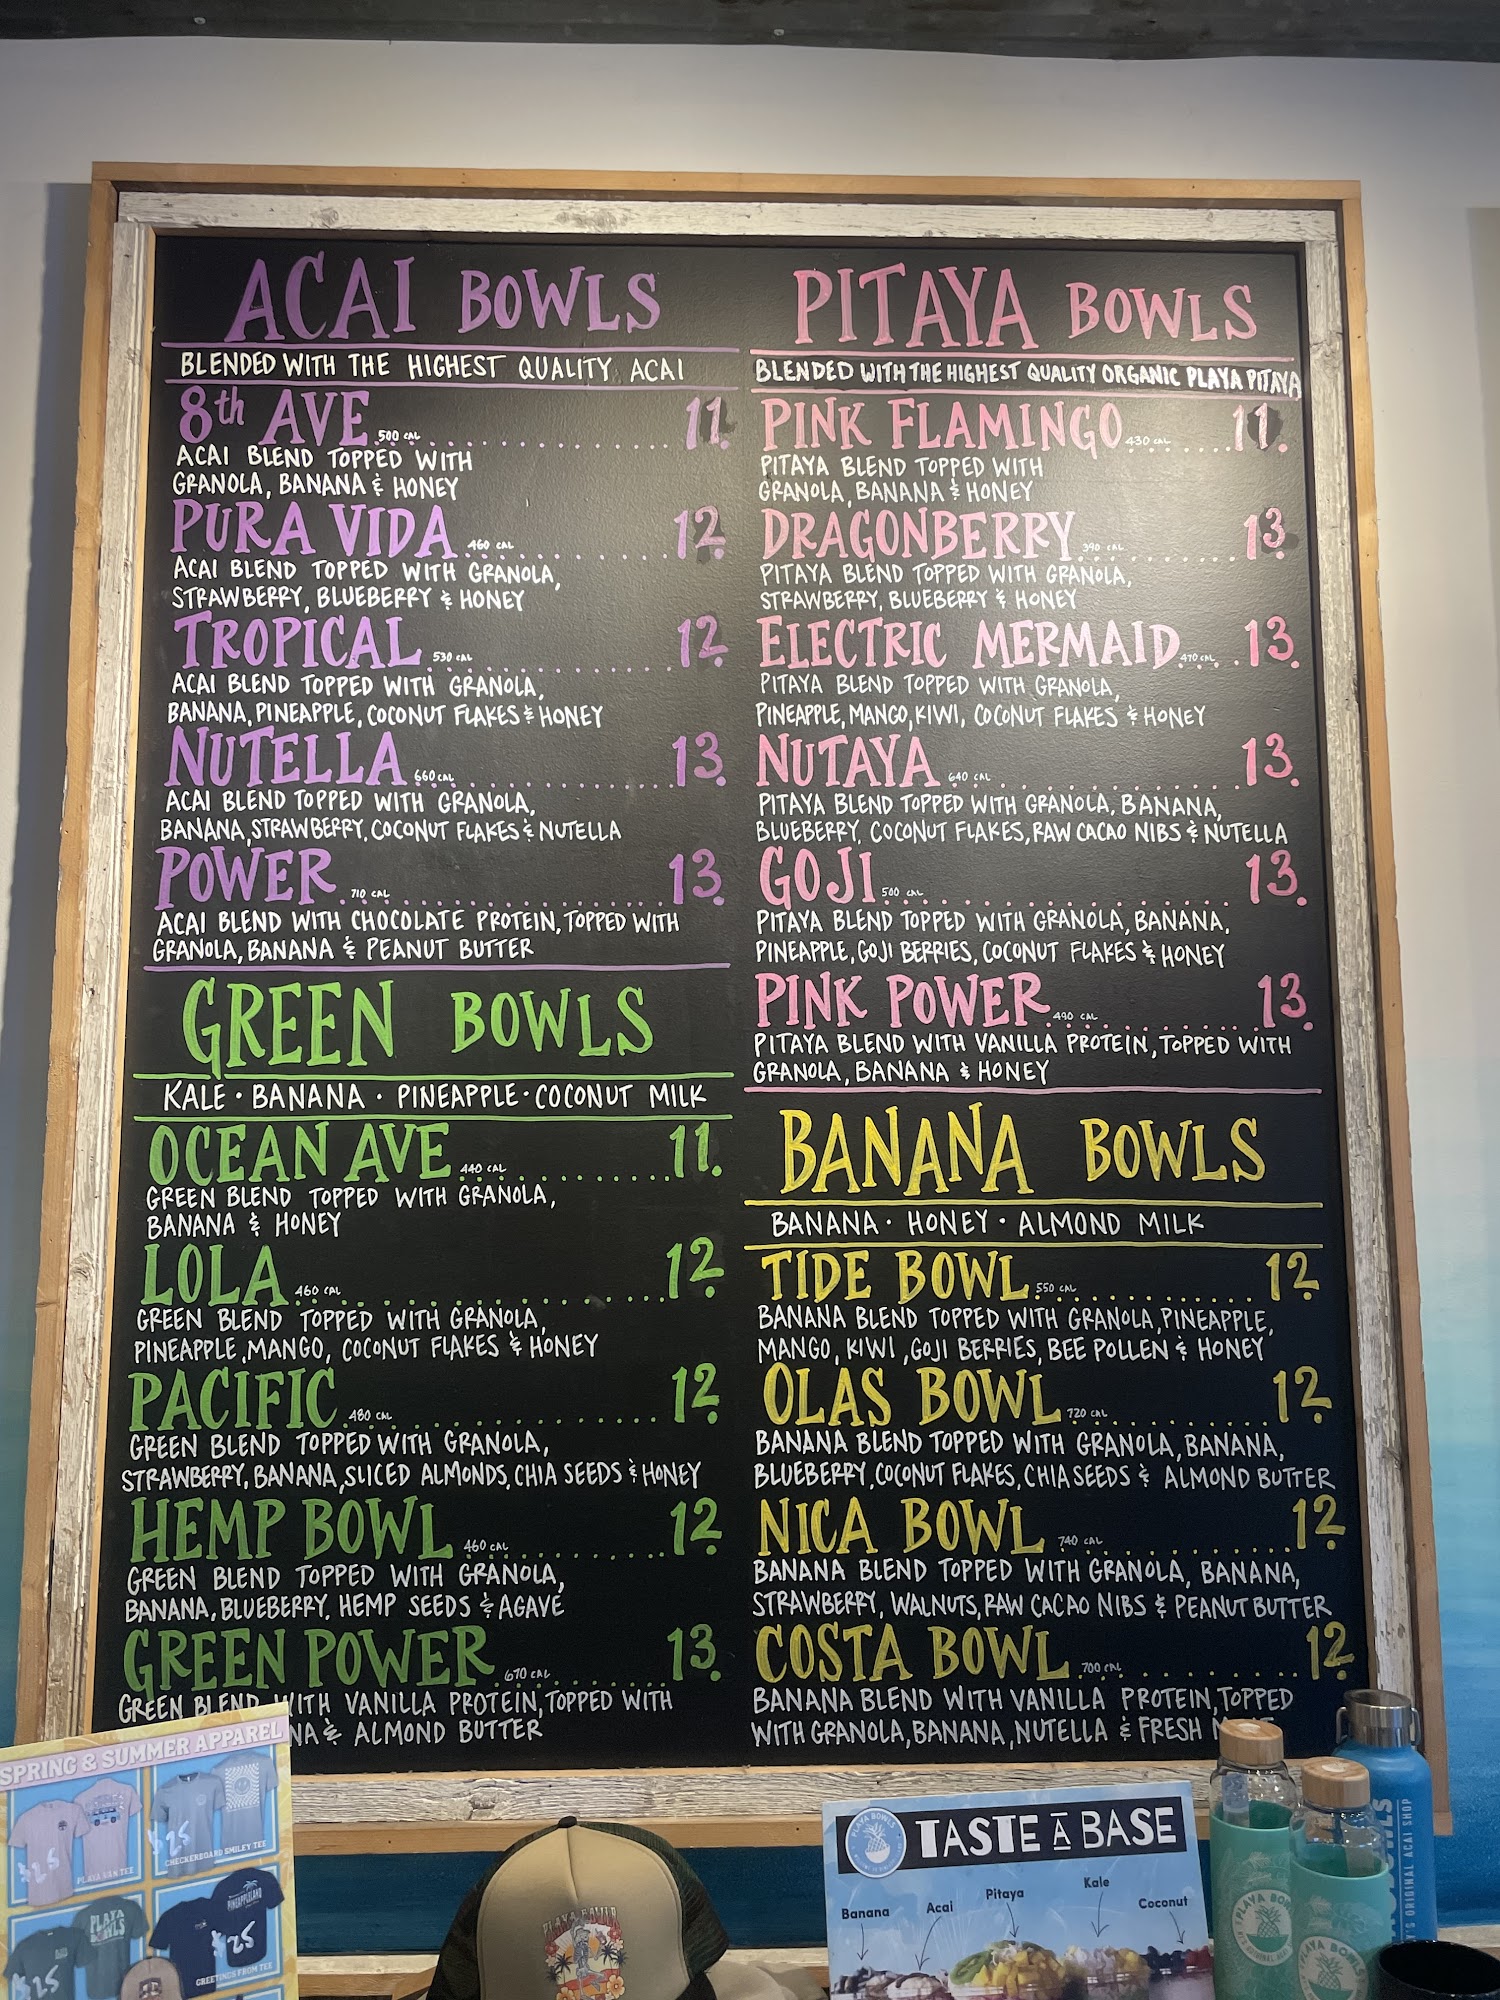 ACAI BOWLS
BLENDED WITH THE HIGHEST QUALITY ACAI
8th AVE 500 CAL 11.
ACAI BLEND TOPPED WITH
GRANOLA, BANANA & HONEY
PURA VIDA 460 CAL 12.
ACAI BLEND TOPPED WITH GRANOLA,
STRAWBERRY, BLUEBERRY & HONEY
TROPICAL 530 CAL 12.
ACAI BLEND TOPPED WITH GRANOLA,
BANANA, PINEAPPLE, COCONUT FLAKES & HONEY
NUTELLA 660 CAL 13.
ACAI BLEND TOPPED WITH GRANOLA,
BANANA, STRAWBERRY, COCONUT FLAKES & NUTELLA
POWER 710 CAL 13.
ACAI BLEND WITH CHOCOLATE PROTEIN, TOPPED WITH
GRANOLA, BANANA & PEANUT BUTTER
GREEN BOWLS
KALE · BANANA · PINEAPPLE · COCONUT MILK
OCEAN AVE 440 CAL 11.
GREEN BLEND TOPPED WITH GRANOLA,
BANANA & HONEY
LOLA 460 CAL 12.
GREEN BLEND TOPPED WITH GRANOLA,
PINEAPPLE, MANGO, COCONUT FLAKES & HONEY
PACIFIC 480 CAL 12.
GREEN BLEND TOPPED WITH GRANOLA,
STRAWBERRY, BANANA, SLICED ALMONDS, CHIA SEEDS & HONEY
HEMP BOWL 460 CAL 12.
GREEN BLEND TOPPED WITH GRANOLA,
BANANA, BLUEBERRY, HEMP SEEDS & AGAVE
GREEN POWER 670 CAL 13.
GREEN BLEND WITH VANILLA PROTEIN, TOPPED WITH
& ALMOND BUTTER
PITAYA BOWLS
BLENDED WITH THE HIGHEST QUALITY ORGANIC PLAYA PITAYA
PINK FLAMINGO 430 CAL 11.
PITAYA BLEND TOPPED WITH
GRANOLA, BANANA & HONEY
DRAGONBERRY 390 CAL 13.
PITAYA BLEND TOPPED WITH GRANOLA,
STRAWBERRY, BLUEBERRY & HONEY
ELECTRIC MERMAID 470 CAL 13.
PITAYA BLEND TOPPED WITH GRANOLA,
PINEAPPLE, MANGO, KIWI, COCONUT FLAKES & HONEY
NUTAYA 640 CAL 13.
PITAYA BLEND TOPPED WITH GRANOLA, BANANA,
BLUEBERRY, COCONUT FLAKES, RAW CACAO NIBS & NUTELLA
GOJI 500 CAL 13.
PITAYA BLEND TOPPED WITH GRANOLA, BANANA,
PINEAPPLE, GOJI BERRIES, COCONUT FLAKES & HONEY
PINK POWER 490 CAL 13.
PITAYA BLEND WITH VANILLA PROTEIN, TOPPED WITH
GRANOLA, BANANA & HONEY
BANANA BOWLS
BANANA · HONEY · ALMOND MILK
TIDE BOWL 550 CAL 12.
BANANA BLEND TOPPED WITH GRANOLA, PINEAPPLE,
MANGO, KIWI, GOJI BERRIES, BEE POLLEN & HONEY
OLAS BOWL 720 CAL 12.
BANANA BLEND TOPPED WITH GRANOLA, BANANA,
BLUEBERRY, COCONUT FLAKES, CHIA SEEDS & ALMOND BUTTER
NICA BOWL 740 CAL 12.
BANANA BLEND TOPPED WITH GRANOLA, BANANA,
STRAWBERRY, WALNUTS, RAW CACAO NIBS & PEANUT BUTTER
COSTA BOWL 700 CAL 12.
BANANA BLEND WITH VANILLA PROTEIN, TOPPED
WITH GRANOLA, BANANA, NUTELLA & FRESH
SPRING & SUMMER APPAREL
$25
PLAYA VAN TEE
$25
CHECKERBOARD SMILEY TEE
PLAYA BOWLS
$25
PINEAPPLELAND
$25
GREETINGS FROM TEE
PLAYA BOWLS
PLAYA BOWLS
TASTE A BASE
Banana
Acai
Pitaya
Kale
Coconut
PLAYA BOWLS
PLAYA BOWLS
ORIGINAL ACAI SHOP